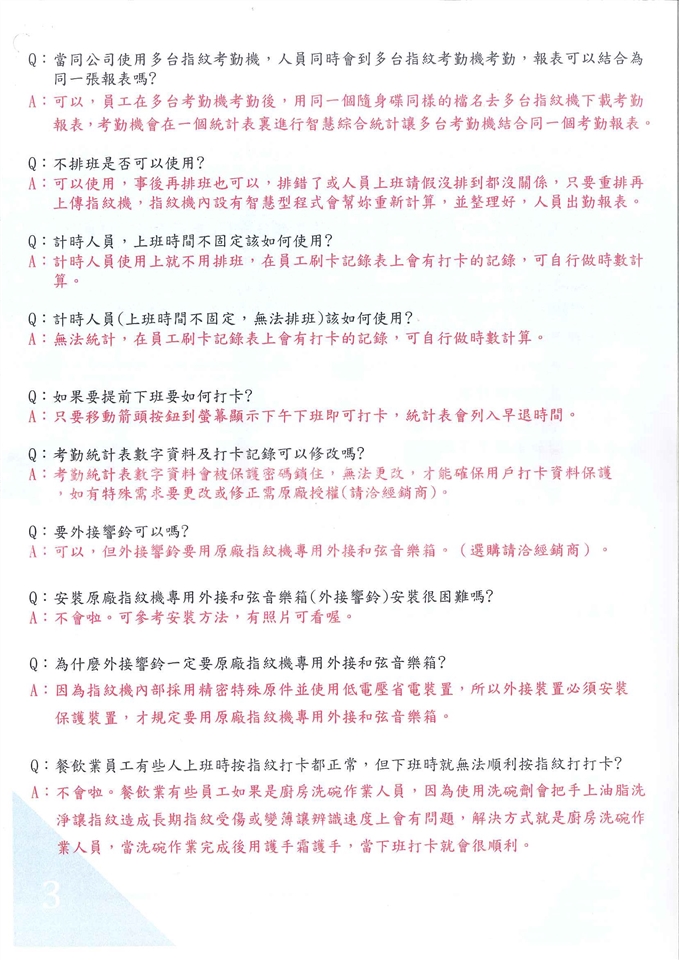 Q：當同公司使用多台指紋考勤機，人員同時會到多台指紋考勤機考勤，報表可以結合為
同一張報表嗎?
A：可以，員工在多台考勤機考勤後，用同一個隨身碟同樣的檔名去多台指紋機下載考勤
報表，考勤機會在一個統計表裏進行智慧綜合統計讓多台考勤機結合同一個考勤報表。
Q：不排班是否可以使用?
A：可以使用，事後再排班也可以，排錯了或人員上班請假沒排到都沒關係，只要重排再
上傳指紋機，指紋機內設有智慧型程式會幫妳重新計算，並整理好，人員出勤報表。
Q：計時人員，上班時間不固定該如何使用?
A：計時人員使用上就不用排班，在員工刷卡記錄表上會有打卡的記錄，可自行做時數計
算。
Q：計時人員(上班時間不固定，無法排班)該如何使用?
A：無法統計，在員工刷卡記錄表上會有打卡的記錄，可自行做時數計算。
Q：如果要提前下班要如何打卡?
A：只要移動箭頭按鈕到螢幕顯示下午下班即可打卡，統計表會列入早退時間。
Q：考勤統計表數字資料及打卡記錄可以修改嗎?
A：考勤統計表數字資料會被保護密碼鎖住，無法更改，才能確保用戶打卡資料保護
，如有特殊需求要更改或修正需原廠授權(請洽經銷商)。
Q：要外接響鈴可以嗎?
A：可以，但外接響鈴要用原廠指紋機專用外接和弦音樂箱。（選購請洽經銷商）。
Q：安裝原廠指紋機專用外接和弦音樂箱(外接響鈴)安裝很困難嗎?
A：不會啦。可參考安裝方法，有照片可看喔。
Q：為什麼外接響鈴一定要原廠指紋機專用外接和弦音樂箱?
A：因為指紋機內部採用精密特殊原件並使用低電壓省電裝置，所以外接裝置必須安裝
保護裝置，才規定要用原廠指紋機專用外接和弦音樂箱。
Q：餐飲業員工有些人上班時按指紋打卡都正常，但下班時就無法順利按指紋打打卡?
A：不會啦。餐飲業有些員工如果是廚房洗碗作業人員，因為使用洗碗劑會把手上油脂洗
淨讓指紋造成長期指紋受傷或變薄讓辨識速度上會有問題，解決方式就是廚房洗碗作
業人員，當洗碗作業完成後用護手霜護手，當下班打卡就會很順利。
3